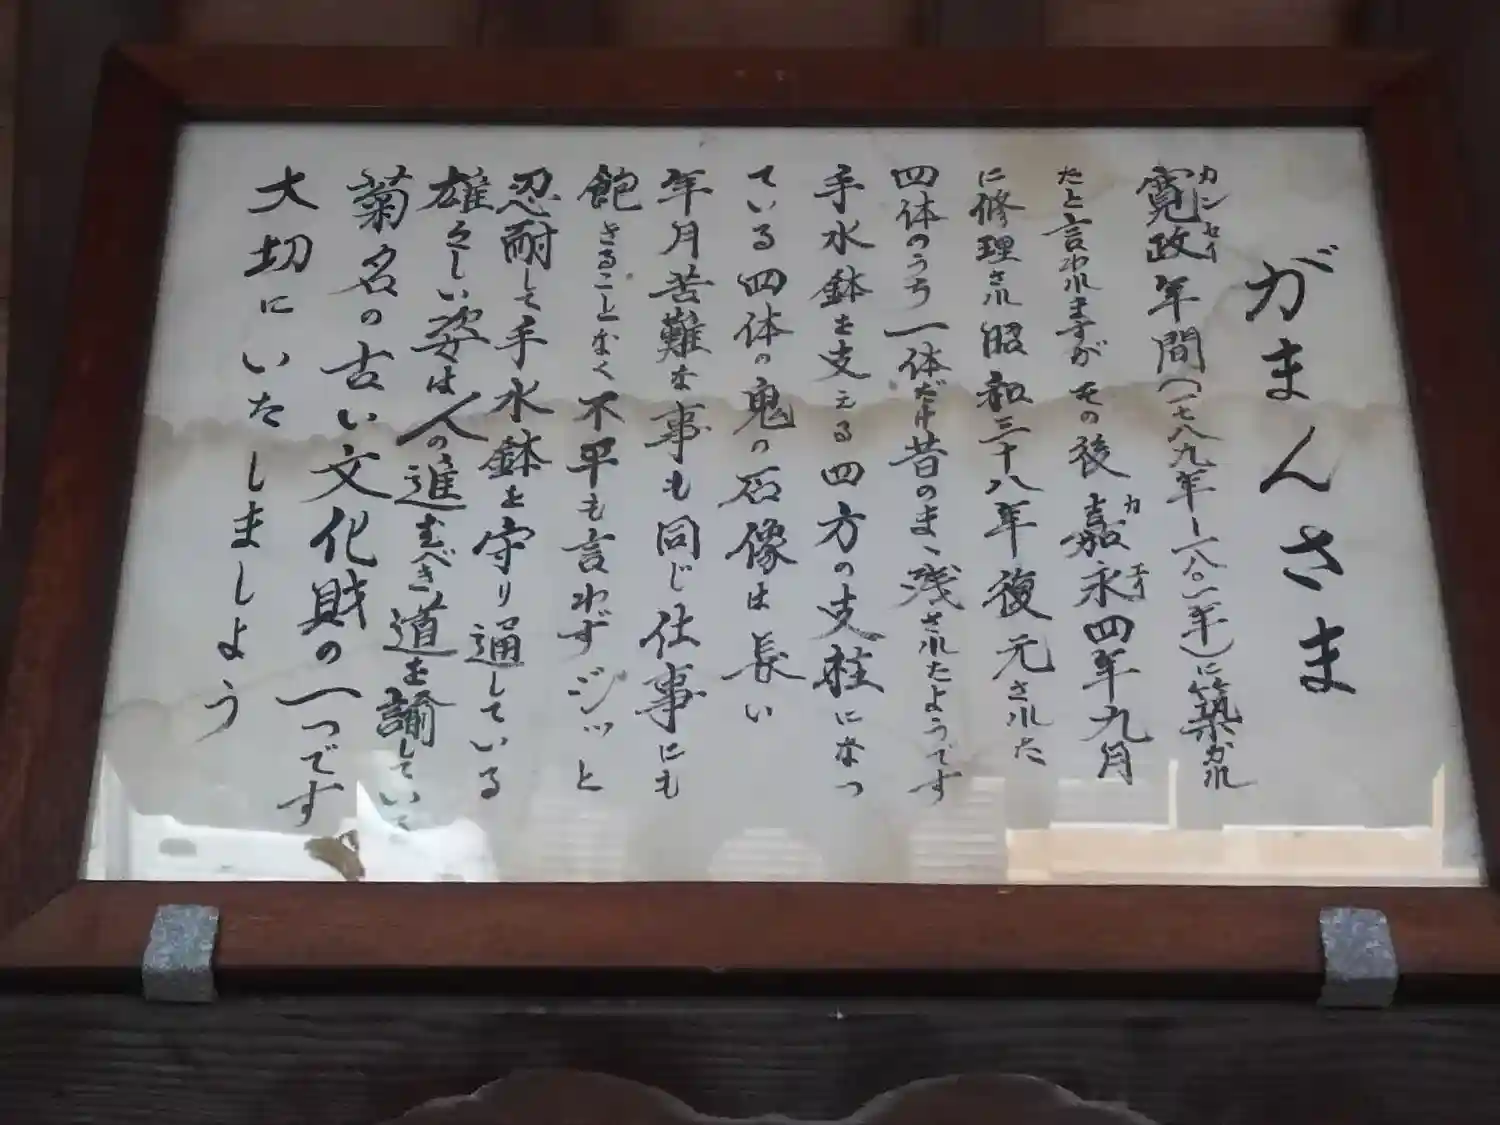 がまんさま
寛政年間(一七八九年〜一八〇一年)に築かれ
カンセイ
たと言われますがその後嘉永四年九月
カエイ
に修理され昭和三十八年復元された
四体のうち一体だけ昔のまゝ残されたようです
手水鉢を支える四方の支柱になっ
ている四体の鬼の石像は長い
年月苦難な事も同じ仕事にも
飽きることなく不平も言わずジッと
忍耐して手水鉢を守り通している
雄々しい姿は人の進むべき道を諭していて
菊名の古い文化財の一つです
大切にいたしましょう